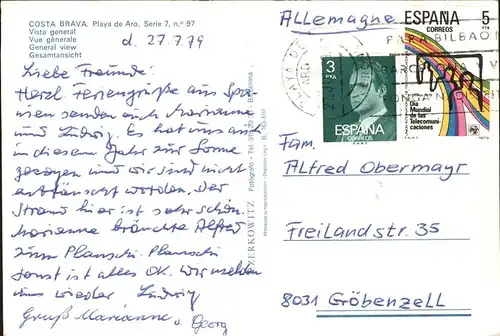 COSTA BRAVA. Playa de Aro. Serie 7, n.º 97
Vista general
Vue génerale
General view
Gesamtansicht
d. 27.7.79
Liebe Freunde!
Herzl. Feriengrüße aus Spa-
nien senden euch Marianne
und Ludwig. Es hat uns auch
in diesem Jahr zur Sonne
gezogen und wir sind nicht
enttäuscht worden. Der
Strand hier ist sehr schön.
Marianne bräuchte Alfred
zum Planschi-Planschi
sonst ist alles OK. Wir melden
uns wieder Ludwig
Gruß Marianne u. Georg
ZERKOWITZ
Fotografo - Tel.
Barcelona
Allemagne
PLAYA DE
ARO
PARA BILBAO
BARCELONA
3
PTA
ESPAÑA
CORREOS
ESPAÑA
CORREOS
5
PTA
Dia
Mundial
de las
Telecomuni-
caciones
Fam.
Alfred Obermayr
Freilandstr. 35
8031 Gröbenzell